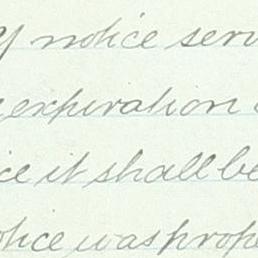 y notice serv
expiration
ice it shall be
otice was prope